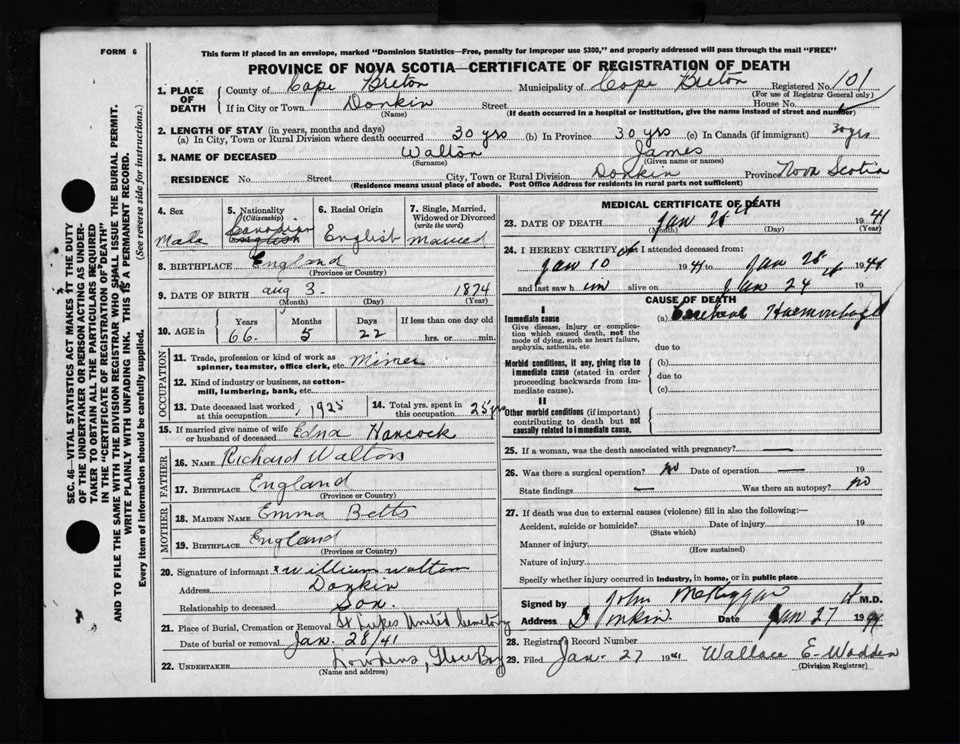 FORM 6
This form if placed in an envelope, marked "Dominion Statistics—Free, penalty for improper use $300," and properly addressed will pass through the mail "FREE"
PROVINCE OF NOVA SCOTIA—CERTIFICATE OF REGISTRATION OF DEATH
SEC. 46—VITAL STATISTICS ACT MAKES IT THE DUTY
OF THE UNDERTAKER OR PERSON ACTING AS UNDER-
TAKER TO OBTAIN ALL THE PARTICULARS REQUIRED
IN THE "CERTIFICATE OF REGISTRATION OF DEATH"
AND TO FILE THE SAME WITH THE DIVISION REGISTRAR WHO SHALL ISSUE THE BURIAL PERMIT.
WRITE PLAINLY WITH UNFADING INK. THIS IS A PERMANENT RECORD.
Every item of information should be carefully supplied. (See reverse side for instructions.)
1. PLACE OF DEATH County of Cape Breton Municipality of Cape Breton Registered No. 101
(For use of Registrar General only)
If in City or Town Donkin Street House No.
(Name) (If death occurred in a hospital or institution, give the name instead of street and number)
2. LENGTH OF STAY (in years, months and days)
(a) In City, Town or Rural Division where death occurred 30 yrs (b) In Province 30 yrs (c) In Canada (if immigrant) 30 yrs
3. NAME OF DECEASED Walton James
(Surname) (Given name or names)
RESIDENCE No. Street City, Town or Rural Division Donkin Province Nova Scotia
(Residence means usual place of abode. Post Office Address for residents in rural parts not sufficient)
4. Sex Male
5. Nationality (Citizenship) Canadian English
6. Racial Origin English
7. Single, Married, Widowed or Divorced (write the word) Married
8. BIRTHPLACE England
(Province or Country)
9. DATE OF BIRTH Aug 3. 1874
(Month) (Day) (Year)
10. AGE in Years Months Days If less than one day old
66. 5 22 hrs. or min.
OCCUPATION
11. Trade, profession or kind of work as spinner, teamster, office clerk, etc. Miner
12. Kind of industry or business, as cotton-mill, lumbering, bank, etc.
13. Date deceased last worked at this occupation 1925
14. Total yrs. spent in this occupation 25 yrs
15. If married give name of wife or husband of deceased Edna Hancock
FATHER
16. NAME Richard Walton
17. BIRTHPLACE England
(Province or Country)
MOTHER
18. MAIDEN NAME Emma Betts
19. BIRTHPLACE England
(Province or Country)
20. Signature of informant William Walton
Address Donkin
Relationship to deceased Son.
21. Place of Burial, Cremation or Removal St Lukes United Cemetery
Date of burial or removal Jan. 28/41
22. UNDERTAKER Glace Bay
(Name and address)
MEDICAL CERTIFICATE OF DEATH
23. DATE OF DEATH Jan 1941
(Month) (Day) (Year)
24. I HEREBY CERTIFY that I attended deceased from
Jan 10 1941 to Jan 1941
and last saw him alive on Jan 24 19
CAUSE OF DEATH
I
Immediate cause (a) Cerebral Haemorrhage
Give disease, injury or complication which caused death, not the mode of dying, such as heart failure, asphyxia, asthenia, etc
due to
Morbid conditions, if any, giving rise to immediate cause (stated in order proceeding backwards from immediate cause).
(b)
due to
(c)
II
Other morbid conditions (if important) contributing to death but not causally related to immediate cause.
25. If a woman, was the death associated with pregnancy? —
26. Was there a surgical operation? no Date of operation — 19
State findings — Was there an autopsy? no
27. If death was due to external causes (violence) fill in also the following:—
Accident, suicide or homicide? Date of injury 19
(State which)
Manner of injury
(How sustained)
Nature of injury
Specify whether injury occurred in industry, in home, or in public place
Signed by John M.D.
Address Donkin. Date Jan 27 1941
28. Registrars Record Number
29. Filed Jan. 27 1941 Wallace E. Wadden
(Division Registrar)